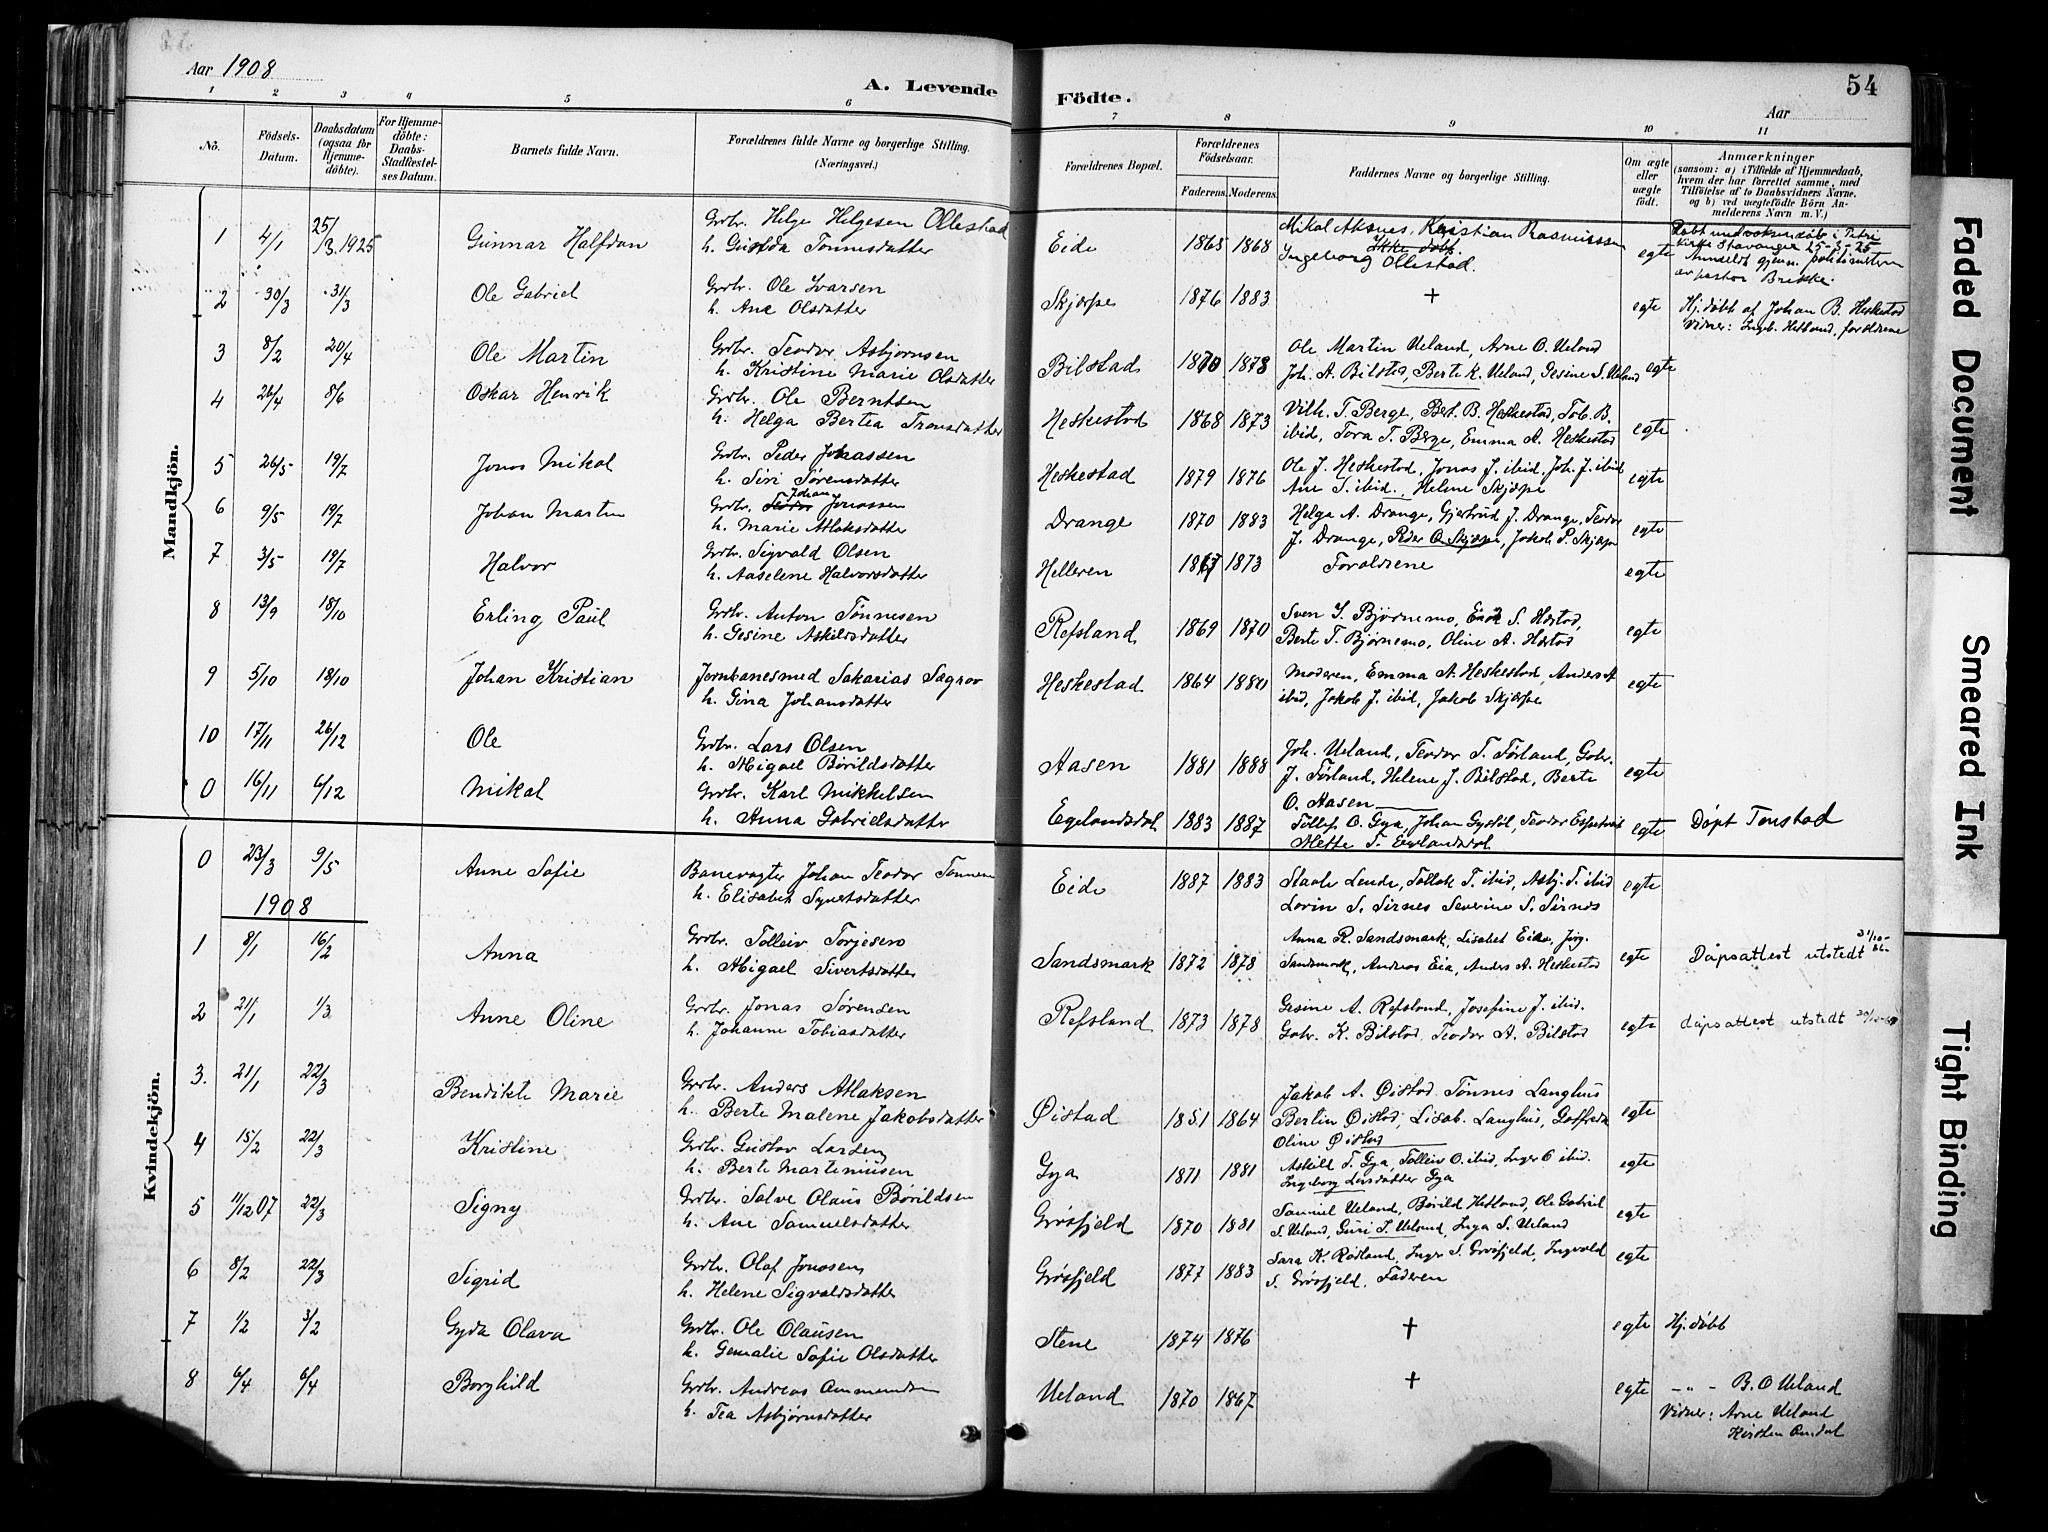 Aar 1908
A. Levende Födte.
54
Aar
1 2 3 4 5 6 7 8 9 10 11
No.
Födsels-Datum.
Daabsdatum (ogsaa for Hjemme-döbte).
For Hjemme-döbte: Daabs-Stadfæstel-ses Datum.
Barnets fulde Navn.
Forældrenes fulde Navne og borgerlige Stilling. (Næringsvei.)
Forældrenes Bopæl.
Forældrenes Födselsaar.
Faderens. Moderens.
Faddernes Navne og borgerlige Stilling.
Om ægte eller uægte födt.
Anmærkninger
(saasom: a) i Tilfælde af Hjemmedaab, hvem der har forrettet samme, med Tilföielse af to Daabsvidners Navne. og b) ved uægtefödte Börn An-melderens Navn m. V.)
Mandkjön.
1 4/1 25/3.1925 Gunnar Halfdan Grbr. Helge Helgesen Ollestad
h. Gustda Tønnesdatter Eide 1865 1868 Mikal Aksnes, Kristian Rasmussen
Ikke døbt
Ingeborg Ollestad. egte Døbt ved voksendåb i Petri
kirke Stavanger 25-3-25
Anmeldt gjenn. politimesteren
av pastor Brekke.
2 30/3 31/3 Ole Gabriel Grbr. Ole Ivarsen
h. Ane Olsdatter Skjæpe 1876 1883 + egte Hj. døbt af Johan B. Heskestad
Vidner: Ingeb. Hetland, forældrene
3 8/2 20/4 Ole Martin Grbr. Teodor Asbjørnsen
h. Kristine Marie Olsdatter Bilstad 1870 1878 Ole Martin Ueland, Arne O. Ueland
Joh. A. Bilstad, Berte K. Ueland, Gesine S. Ueland egte
4 26/4 8/6 Oskar Henrik Grbr. Ole Berntsen
h. Helga Bertea Tronsdatter Heskestad 1868 1873 Vilh. T. Berge, Bert. B. Heskestad, Tob. B.
ibid, Tora T. Berge, Emma A. Heskestad egte
5 26/5 19/7 Jonas Mikal Grbr. Peder Johassen
h. Siri Sørensdatter Heskestad 1879 1876 Ole J. Heskestad, Jonas J. ibid, Joh. J. ibid
Ane S. ibid., Helene Skjæpe egte
6 9/5 19/7 Johan Martin Grbr. Teodor Johan Jonassen
h. Marie Atlaksdatter Drange 1870 1883 Helga A. Drange, Gjertrud J. Drange, Teodor
J. Drange, Peder O. Skjæpe, Jakob P. Skjæpe egte
7 3/5 19/7 Halvor Grbr. Sigvald Olsen
h. Aaselene Halvorsdatter Helleren 1867 1873 Forældrene egte
8 13/9 18/10 Erling Paul Grbr. Anton Tønnesen
h. Gesine Askildsdatter Refsland 1869 1870 Sven T. Bjørnemo, Erik S. Hæstad,
Berte T. Bjørnemo, Oline A. Hæstad egte
9 5/10 18/10 Johan Kristian Jernbanesmed Sakarias Sægrov
h. Gina Johansdatter Heskestad 1864 1880 Moderen, Emma A. Heskestad, Anders A
ibid, Jakob J. ibid, Jakob Skjæpe egte
10 17/11 26/12 Ole Grbr. Lars Olsen
h. Migael Børildsdatter Aasen 1881 1888 Joh. Ueland, Teodor T. Førland, Gabr.
J. Førland, Helene J. Bilstad, Berte
O. Aasen egte
0 16/11 6/12 Mikal Grbr. Karl Mikkelsen
h. Anna Gabrielsdatter Egelandsdal 1883 1887 Tollef O. Gya, Johan Gystøl, Teodor Espetveit
Mette T. Egelandsdal egte Døpt Tonstad
Kvindekjön.
0 23/3 9/5 Anne Sofie Banevogter Johan Teodor Tønnesen
h. Elisabet Syvertsdatter Eide 1887 1883 Staale Lende, Tollak T. ibid, Asbj. T. ibid
Lovin S. Sirnes Severine S. Sirnes egte
1908
1 8/1 16/2 Anna Grbr. Tolleiv Torjesen
h. Migael Sivertsdatter Sandsmark 1872 1878 Anna R. Sandsmark, Lisabet Eia, Jørg.
Sandsmark, Andreas Eia, Anders A. Heskestad egte Dåpsattest utstedt 31/10-
2 21/1 1/3 Anne Oline Grbr. Jonas Sørensen
h. Johanne Tobiasdatter Refsland 1873 1878 Gesine A. Refsland, Josefine J. ibid.
Gabr. K. Bilstad, Teodor A. Bilstad egte dåpsattest utstedt
3. 21/1 22/3 Bendikte Marie Grbr. Anders Atlaksen
h. Berte Malene Jakobsdatter Øistad 1851 1864 Jakob A. Øistad Tønnes Langhus
Bertin Øistad, Lisab. Langhus, Gotfreda
Oline Øistad egte
4 15/2 22/3 Kristine Grbr. Gustav Larsen
h. Berte Martiniusen Gya 1871 1881 Askild T. Gya, Tolleiv O. ibid, Inger O ibid.
Ingeborg Larsdatter Gya egte
5 11/12 07 22/3 Signy Grbr. Salve Olaus Børildsen
h. Ane Samuelsdatter Grøsfjeld 1870 1881 Samuel Ueland, Børild Hetland, Ole Gabriel
S. Ueland, Guri T. Ueland, Inga S. Ueland egte
6 8/2 22/3 Sigrid Grbr. Olaf Jonasen
h. Helene Sigvaldsdatter Grøsfjeld 1877 1883 Sara K. Rødland, Inger S. Grøsfjeld, Ingvald
S. Grøsfjeld. Faderen egte
7 1/2 3/2 Gyda Olava Grbr. Ole Olausen
h. Gemalie Sofie Olsdatter Stene 1874 1876 + egte Hj. døbt
8 6/4 6/4 Borghild Grbr. Andreas Ammundsen
h. Tea Asbjørnsdatter Ueland 1870 1867 + egte -"- B. O Ueland
Vidner: Arne Ueland
Kirsten Omdal
Faded Document
Smeared Ink
Tight Binding